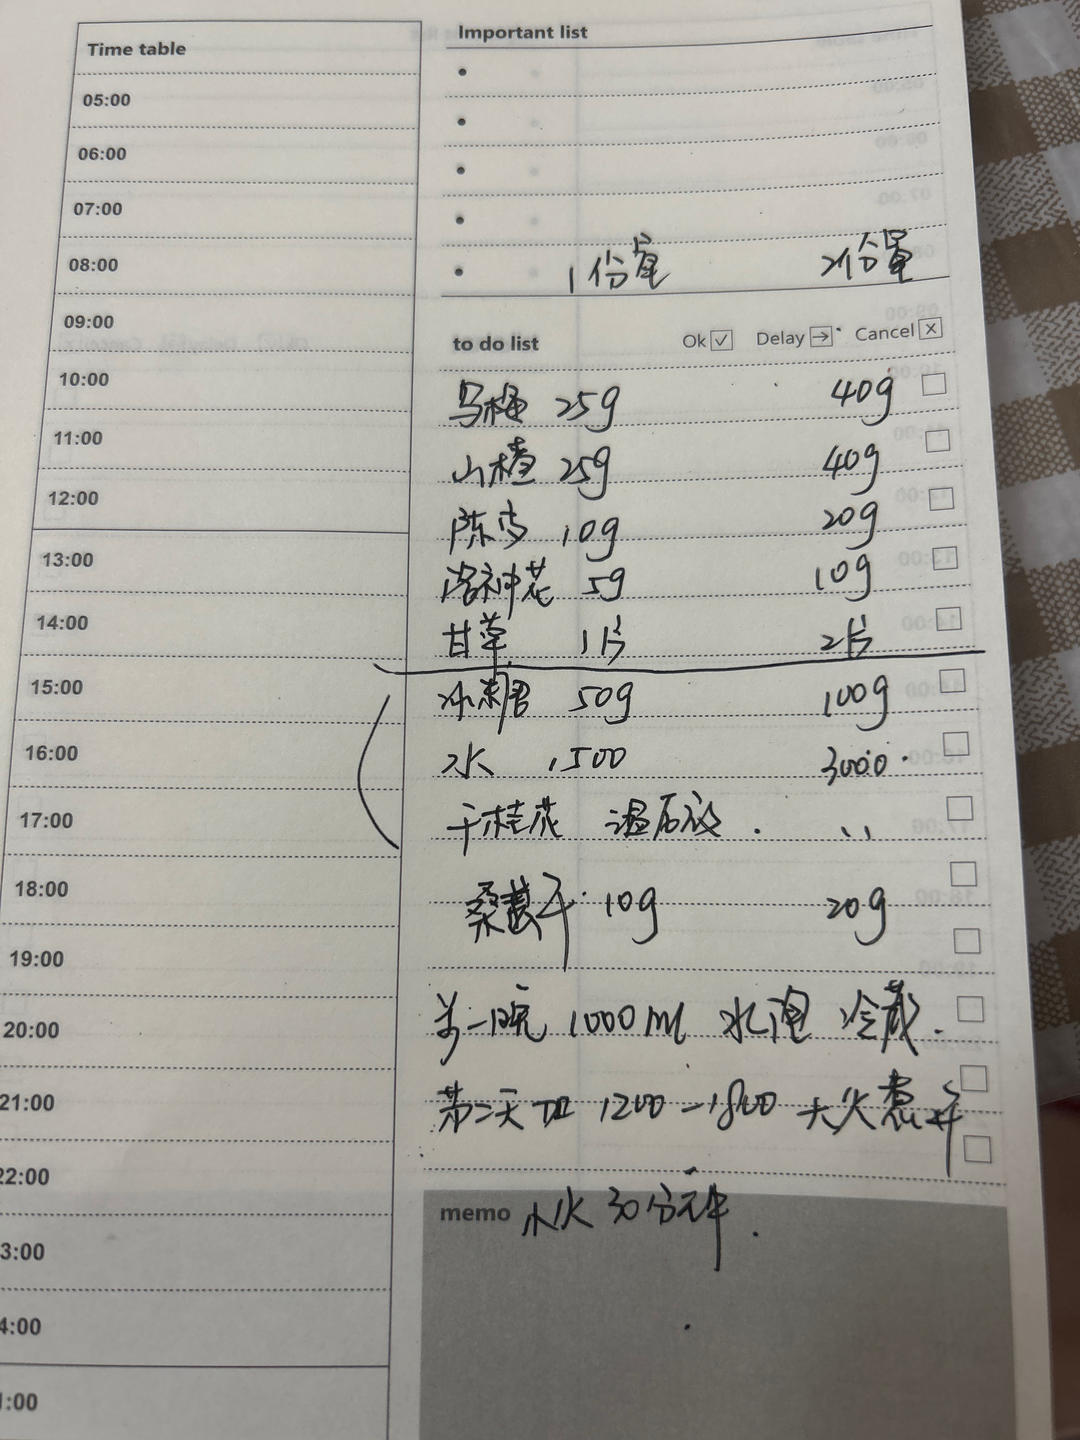 Time table
05:00
06:00
07:00
08:00
09:00
10:00
11:00
12:00
13:00
14:00
15:00
16:00
17:00
18:00
19:00
20:00
21:00
22:00
3:00
4:00
1:00
Important list
1份量 2份量
to do list Ok Delay Cancel
乌梅 25g 40g
山楂 25g 40g
陈皮 10g 20g
洛神花 5g 10g
甘草 1片 2片
冰糖 50g 100g
水 1500 3000
干桂花 温后放
桑葚干 10g 20g
前一晚 1000ml 水泡 冷藏.
第二天加 1200-1800 大火煮开
memo 小火 30分钟.